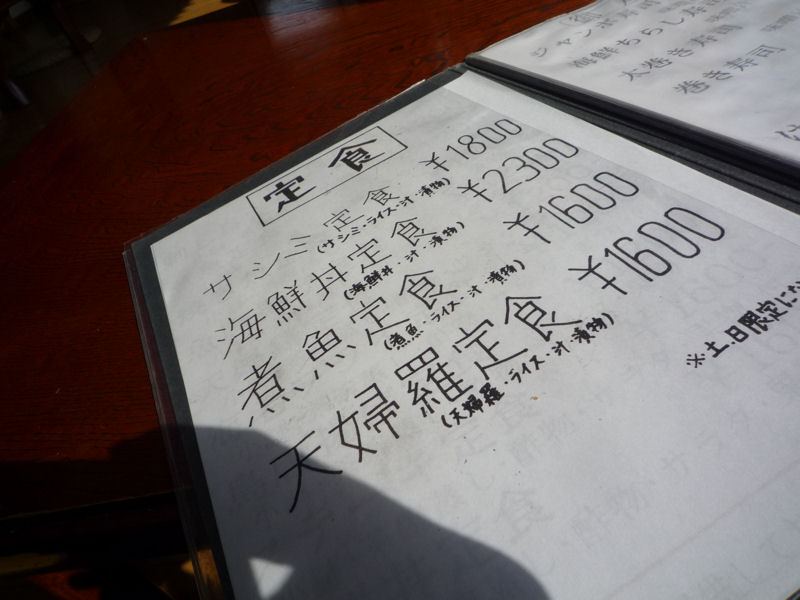 定食
サシミ定食 ¥1800
(サシミ・ライス・汁・漬物)
海鮮丼定食 ¥2300
(海鮮丼・汁・漬物)
煮魚定食 ¥1600
(煮魚・ライス・汁・漬物)
天婦羅定食 ¥1600
(天婦羅・ライス・汁・漬物)
※土.日限定にな
海鮮ちらし寿司
巻き寿司